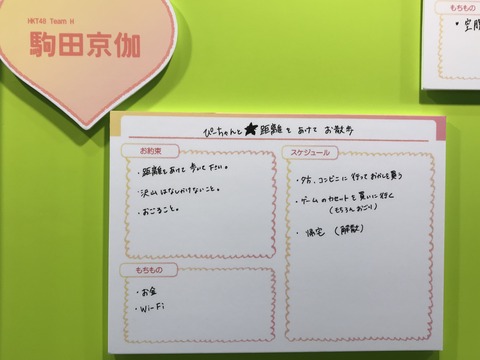 HKT48 Team H
駒田京伽
もちもの
ぴーちゃんと★距離をあけてお散歩
お約束
・距離をあけて歩いて下さい。
・沢山はなしかけないこと。
・おごること。
もちもの
・お金
・Wi-Fi
スケジュール
・夕方、コンビニに行っておかしを買う
・ゲームのカセットを買いに行く
(もちろんおごり)
・帰宅 (解散)